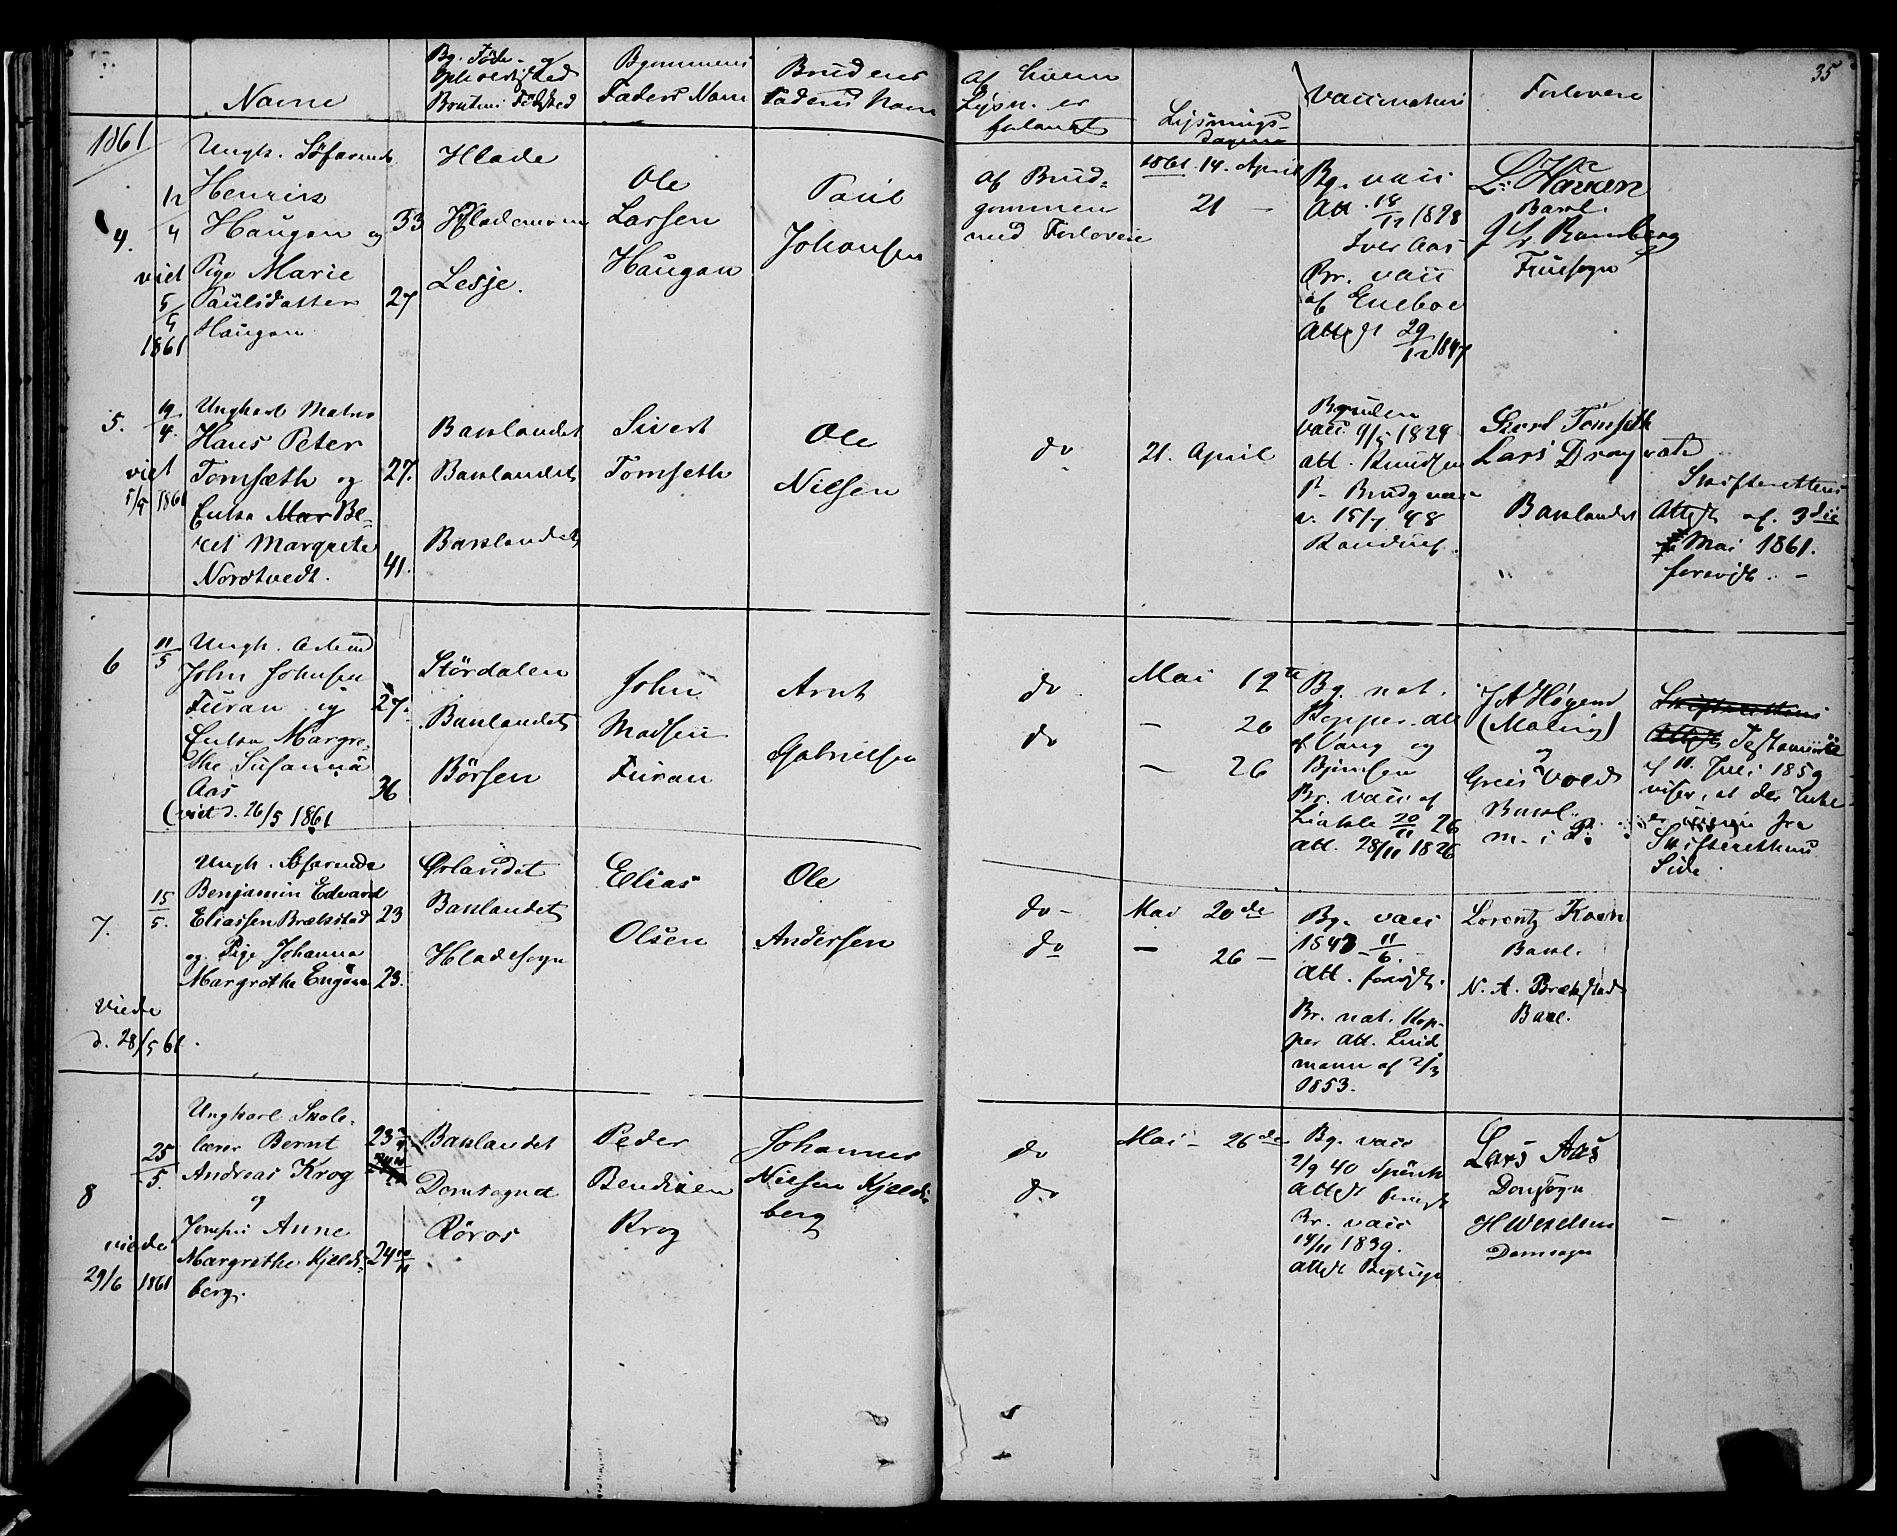 35
Name
Bg. Føde- og
Opholdssted
Brudens Fødested
Bgommens
Faders Navn
Brudens
Faders Navn
af hvem
Lysn. er
forlangt
Lysnings-
dagene
Vaccinatien
Forlovere
1861
4.
12/4
viet
5/5
1861
Ungk. Søfarende
Henrik
Haugan og
Pige Marie
Paulsdatter
Haugan
33
27
Hlade
Hlademoen
Lesje.
Ole
Larsen
Haugan
Paul
Johansen
af Brud-
gommen
med Forlovere
1861. 14. April
21 —
Bg. vacc
Att. 18/12 1828
Iver Aas
Br. vacc
af Eneboe
Att 29/12 1847
L. Hansen
Bakl.
Ramberg
Fruesogn
5.
19/4.
viet
5/5 1861
Ungkarl Matros
Hans Peter
Tomsæth og
Enken Mar Be-
ret Margrete
Nordtvedt.
27.
41.
Baklandet
Baklandet
Baklandet
Sivert
Tomseth
Ole
Nilsen
do
21. April
Bruden
vacc 9/5 1829
att. Knudsen
P- Brudg vacc
15/7 48
Sivert Tomseth
Lars Dragvold
Baklandet
Skifterettens
Att af. 3die
Mai 1861.
forevist. -
6
11/5
Ungk. Arbeid
John Johnsen
Furan og
Enken Margre-
the Susanna
Aas
(viet d. 26/5 1861
27.
36
Stördalen
Baklandet
Börsen
John
Madsen
Furan
Arnt
Gabrielsen
do
do
Mai 12te
— 20
— 26
Bg. nat.
Kopper. att
af Vang og
Br. vacc. af
20/11 26
att. 28/11 1826
J A Högend
(Maling)
og
Volds
Bakl.
m. i P.
Skifterettens
Testamente
af 11. Juli 1859
viser, at der Intet
er fra
Skifterettens
Side
7.
15/5.
Viede
d. 28/5 61.
Ungk. Søfarende
Benjamin Edvard
Eliassen Brækstad
og Pige Johanna
Margrethe Engøen
23
23.
Ørlandet
Baklandet
Hladesogn
Elias
Olsen
Ole
Andersen
do -
do
Mai 20de
— 26 —
Bg. vacc
1843 11/6.
Att. forevist.
Br. nat. Kop-
per Att. Lind
mann af 2/3
1853.
Lorentz Koen
Bakl.
N. A. Brækstad
Bakl.
8
25/5.
viede
29/6 1861
Ungkarl Skole-
lærer Bernt
Andreas Krog
og
Jomfru Anne
Margrethe Kjelds-
berg.
23
24 10/11
Baklandet
Domsognet
Röros
Peder
Bendixen
Krog
Johannes
Nilsen Kjelds-
berg
do
do
Mai - 26de
Bg. vacc
2/9 40
Br. vacc
14/11 1839.
Lars Aas
Domsogn
H Wexelsen
Domsogn